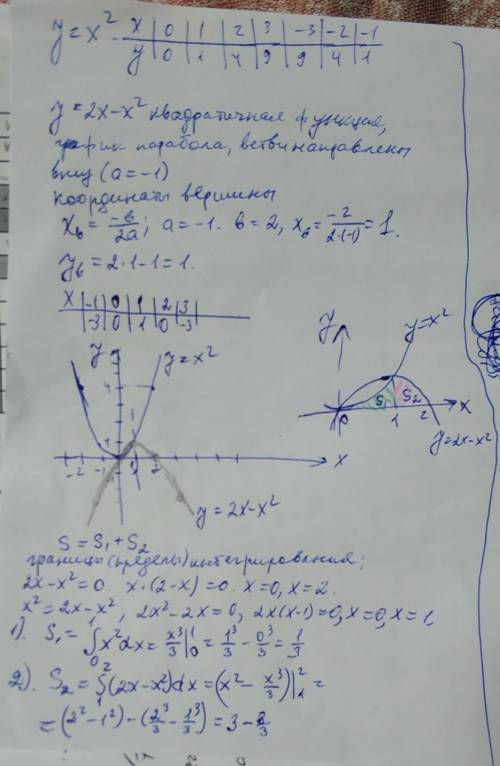 y = x² x | 0 | 1 | 2 | 3 | -3 | -2 | -1
y | 0 | 1 | 4 | 9 | 9 | 4 | 1
y = 2x - x² квадратичная функция,
график парабола, ветви направлены
вниз (a = -1).
координаты вершины
x_в = -в/2a; a = -1. в = 2, x_в = -2/(2·(-1)) = 1.
y_в = 2·1 - 1 = 1.
x | -1 | 0 | 1 | 2 | 3
-3 | 0 | 1 | 0 | -3
y
y = x²
4
1
-2 -1 1 2 x
y = 2x - x²
y
y = x²
S S₂
0 1 2 x
y = 2x - x²
S = S₁ + S₂
границы (пределы) интегрирования;
2x - x² = 0. x·(2 - x) = 0. x = 0, x = 2.
x² = 2x - x², 2x² - 2x = 0, 2x(x - 1) = 0, x = 0, x = 1,
1). S₁ = ∫₀¹ x²dx = x³/3 |₀¹ = 1³/3 - 0³/3 = 1/3
2). S₂ = ∫₁² (2x - x²)dx = (x² - x³/3)|₁² =
= (2² - 1²) - (2³/3 - 1³/3) = 3 - 8/3